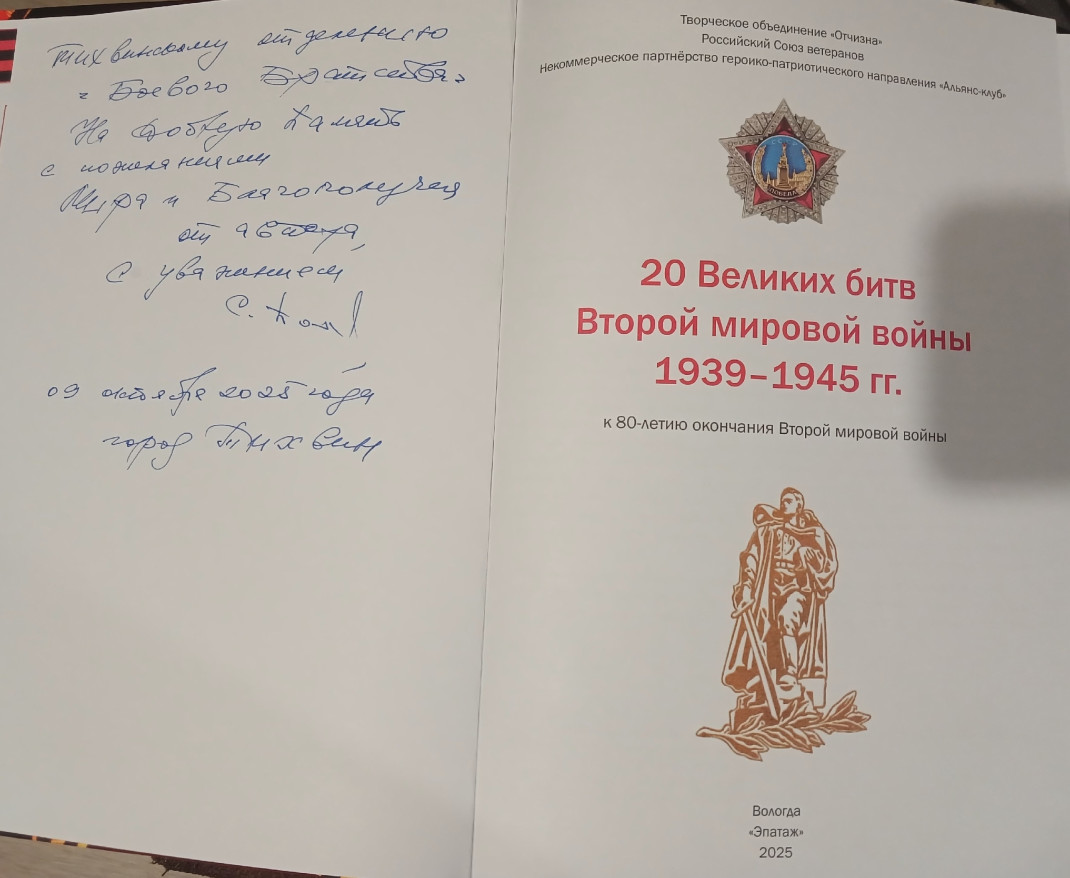 Тихвинскому отделению
"Боевого Братства"
На добрую память
с пожеланием
Мира и Благополучия
от автора,
С уважением
С.
09 октября 2025 года
город Тихвин
Творческое объединение «Отчизна»
Российский Союз ветеранов
Некоммерческое партнёрство героико-патриотического направления «Альянс-клуб»
ПОБЕДА
20 Великих битв
Второй мировой войны
1939–1945 гг.
к 80-летию окончания Второй мировой войны
Вологда
«Эпатаж»
2025